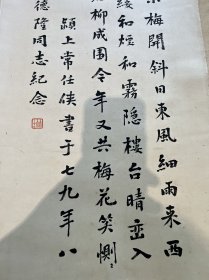 梅開斜日東風細雨來西
綏和煙和霧隱樓台晴巒入
柳成園今年又共梅花笑惻
潁上常任俠書于七九年八
德隆同志紀念